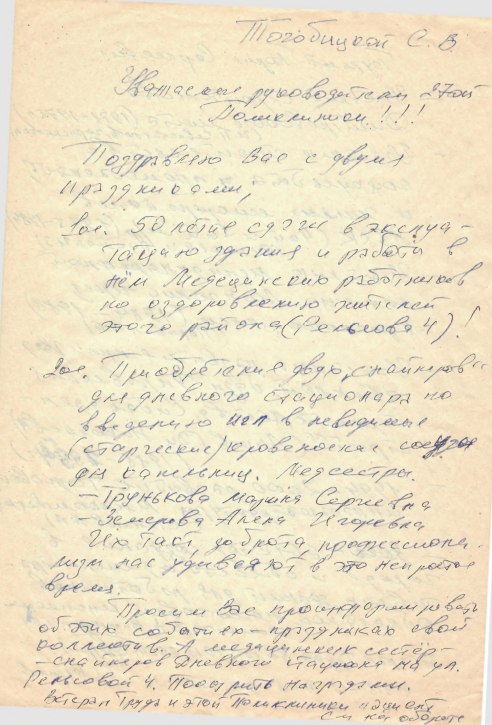 Тогобицкой С. В.
Уважаемые руководители 27ой
Поликлиники!!!
Поздравляю Вас с двумя
праздниками,
1ое. 50 летие сдачи в эксплуа-
тацию здания и работы в
нём Медецинских работников
по оздоровлению жителей
этого района (Рельсовая 4)!
2ое. Приобретение двух "снайперов"
для дневного стационара по
введению игл в невидимые
(старческие) кровеносные сосуды
для капельниц. Медсестры.
– Трунькова Марина Сергеевна
– Земерова Алена Игоревна
Их такт, доброта, профессиона-
лизм нас удивляют в это непростое
время.
Просим Вас проинформировать
об этих событиях – праздниках свой
коллектив. А медицинских сестёр-
– снайперов Дневного стационара на ул.
Рельсовой 4. Поощрить наградами.
Ветеран Труда и этой Поликлиники пациент
См на обороте